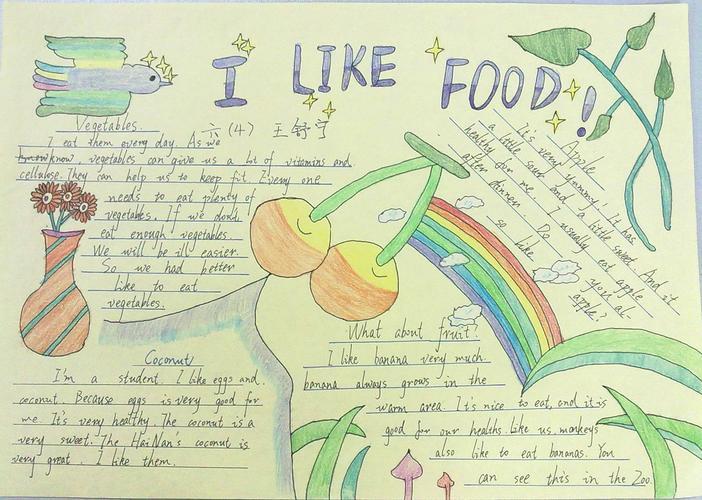 I LIKE FOOD!
六(4) 王舒宁
Vegetables.
I eat them every day. As we
know vegetables can give us a lot of vitamins and
cellulose. They can help us to keep fit. Every one
needs to eat plenty of
vegetables. If we don't
eat enough vegetables.
We will be ill easier.
So we had better
like to eat
vegetables.
Apple
It's very yommy. It has
a little sour and a little sweet. And it
healthy for me. I usually eat apple
after dinner. Do you
so like
apple?
What about fruit?
I like banana very much.
banana always grows in the
warm area. It's nice to eat, and it is
good for our healths. like us, monkeys
also like to eat bananas. You
can see this in the Zoo.
Coconut
I'm a student. I like eggs and
coconut. Because eggs is very good for
me. It's very healthy. The coconut is a
very sweet. The HaiNan's coconut is
very great. I like them.